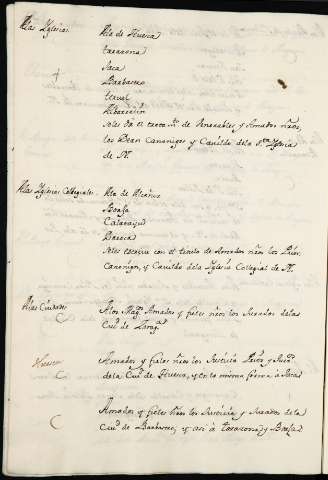 A las Yglesias A la de Huesca
tarazona
Jaca
Barbastro
teruel
Albarracin
Seles da el tratamto. de Venerables y Amados ñros,
los Dean Canonigos y Cavildo de la Sta. Yglesia
de N.
A las Yglesias Collegiales. A la de Alcañiz
Borja
Calatayud
Daroca
Seles escrive con el titulo de Amados ñros los Prior,
Canonigos, y Cavildo de la Yglesia Collegial de N.
A las Ciudades A los Magcos. Amados y fieles ñros los Jurados de las
Ciud. de Zaragª.
Huesca Amados y fieles ñros los Justicia Prior y Jurados
de la Ciud. de Huesca, y en la misma forma à Jaca
Amados y fieles ñros los Justicia y Jurados de la
Ciud. de Barbastro, y asi à tarazona y Borja